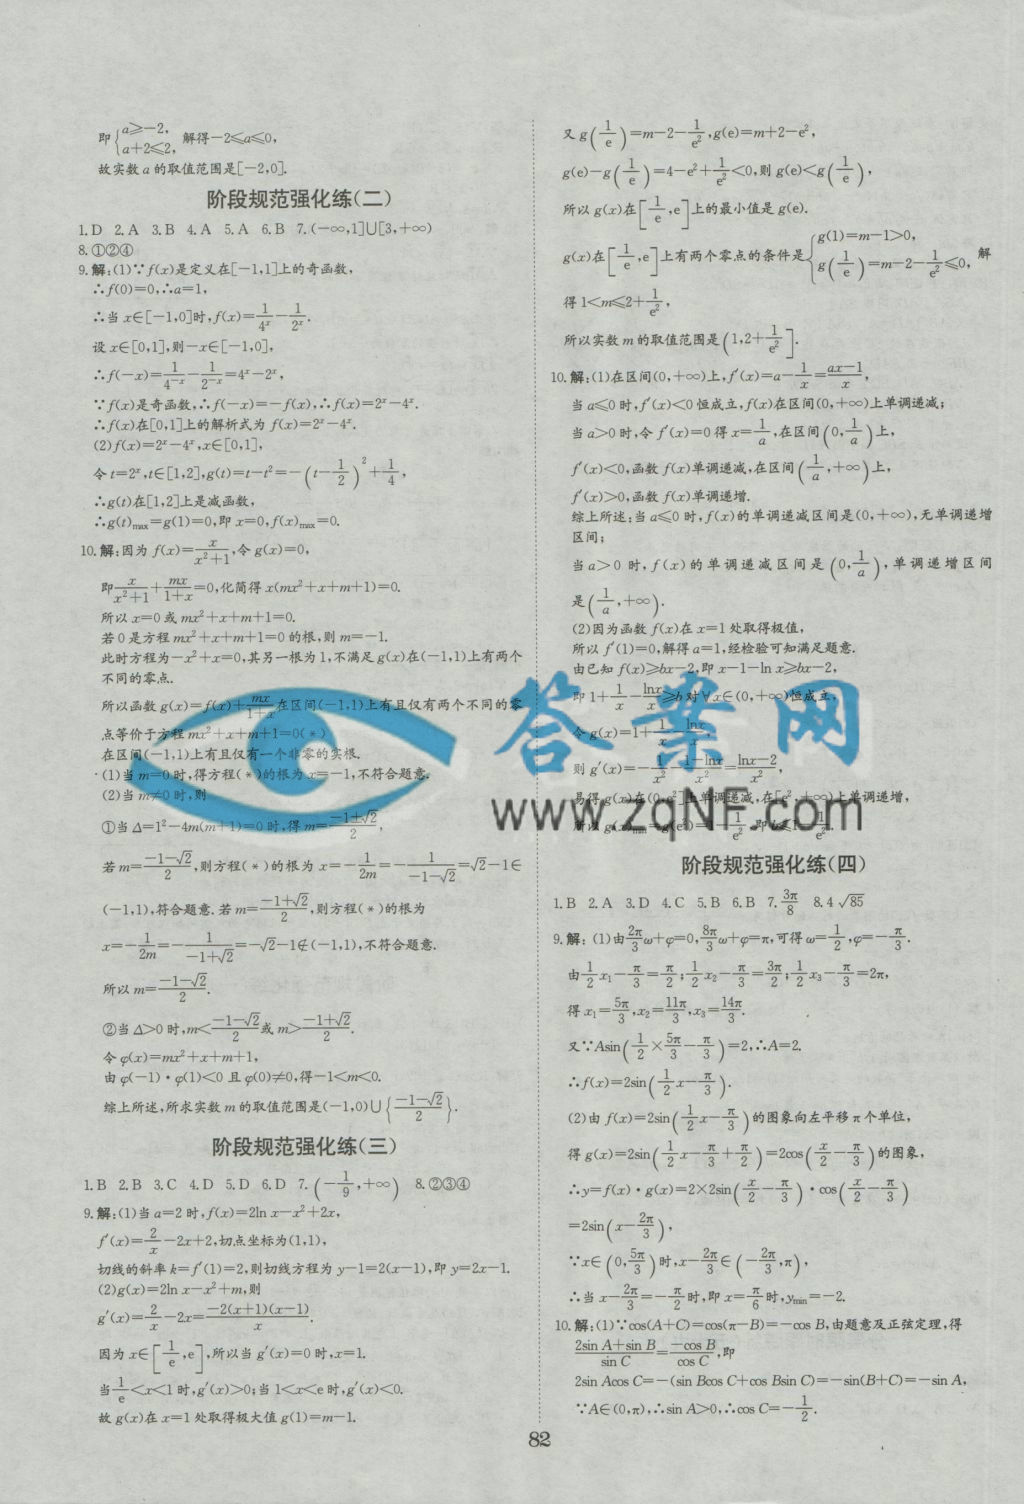 即{a≥-2, a+2≤2, 解得-2≤a≤0,
故实数 a 的取值范围是[-2,0].
阶段规范强化练(二)
1.D 2.A 3.B 4.A 5.A 6.B 7.(-∞,1]∪[3,+∞)
8.①②④
9.解:(1)∵f(x)是定义在[-1,1]上的奇函数,
∴f(0)=0,∴a=1,
∴当 x∈[-1,0]时,f(x)=1/4^x-1/2^x.
设 x∈[0,1],则-x∈[-1,0],
∴f(-x)=1/4^-x-1/2^-x=4^x-2^x,
∵f(x)是奇函数,∴f(-x)=-f(x),∴f(x)=2^x-4^x.
∴f(x)在[0,1]上的解析式为 f(x)=2^x-4^x.
(2)f(x)=2^x-4^x,x∈[0,1],
令 t=2^x,t∈[1,2],g(t)=t-t²=-(t-1/2)²+1/4,
∴g(t)在[1,2]上是减函数,
∴g(t)max=g(1)=0,即 x=0,f(x)max=0.
10.解:因为 f(x)=x/(x²+1),令 g(x)=0,
即x/(x²+1)+mx/(1+x)=0,化简得 x(mx²+x+m+1)=0.
所以 x=0 或 mx²+x+m+1=0.
若 0 是方程 mx²+x+m+1=0 的根,则 m=-1.
此时方程为-x²+x=0,其另一根为 1,不满足 g(x)在(-1,1)上有两个
不同的零点.
所以函数 g(x)=f(x)+mx/(1+x)在区间(-1,1)上有且仅有两个不同的零
点等价于方程 mx²+x+m+1=0(*)
在区间(-1,1)上有且仅有一个非零的实根.
·(1)当 m=0 时,得方程(*)的根为 x=-1,不符合题意.
(2)当 m≠0 时,则
①当 Δ=1²-4m(m+1)=0 时,得 m=(-1±√2)/2,
若 m=(-1-√2)/2,则方程(*)的根为 x=-1/2m=-1/(-1-√2)=√2-1∈
(-1,1),符合题意.若 m=(-1+√2)/2,则方程(*)的根为
x=-1/2m=-1/(-1+√2)=-√2-1∉(-1,1),不符合题意.
所以 m=(-1-√2)/2.
②当 Δ>0 时,m<(-1-√2)/2或 m>(-1+√2)/2.
令 φ(x)=mx²+x+m+1,
由 φ(-1)·φ(1)<0 且 φ(0)≠0,得-1<m<0.
综上所述,所求实数 m 的取值范围是(-1,0)∪{(-1-√2)/2}.
阶段规范强化练(三)
1.B 2.B 3.C 4.D 5.D 6.D 7.(-1/9,+∞) 8.②③④
9.解:(1)当 a=2 时,f(x)=2ln x-x²+2x,
f′(x)=2/x-2x+2,切点坐标为(1,1),
切线的斜率 k=f′(1)=2,则切线方程为 y-1=2(x-1),即 y=2x-1.
(2)g(x)=2ln x-x²+m,则
g′(x)=2/x-2x=-2(x+1)(x-1)/x.
因为 x∈[1/e,e],所以当 g′(x)=0 时,x=1.
当1/e<x<1 时,g′(x)>0;当 1<x<e 时,g′(x)<0.
故 g(x)在 x=1 处取得极大值 g(1)=m-1.
又 g(1/e)=m-2-1/e²,g(e)=m+2-e²,
g(e)-g(1/e)=4-e²+1/e²<0,则 g(e)<g(1/e),
所以 g(x)在[1/e,e]上的最小值是 g(e).
g(x)在[1/e,e]上有两个零点的条件是{g(1)=m-1>0, g(1/e)=m-2-1/e²≤0, 解
得 1<m≤2+1/e²,
所以实数 m 的取值范围是(1,2+1/e²].
10.解:(1)在区间(0,+∞)上,f′(x)=a-1/x=(ax-1)/x,
当 a≤0 时,f′(x)<0 恒成立,f(x)在区间(0,+∞)上单调递减;
当 a>0 时,令 f′(x)=0 得 x=1/a,在区间(0,1/a)上,
f′(x)<0,函数 f(x)单调递减,在区间(1/a,+∞)上,
f′(x)>0,函数 f(x)单调递增.
综上所述:当 a≤0 时,f(x)的单调递减区间是(0,+∞),无单调递增
区间;
当 a>0 时,f(x)的单调递减区间是(0,1/a),单调递增区间
是(1/a,+∞).
(2)因为函数 f(x)在 x=1 处取得极值,
所以 f′(1)=0,解得 a=1,经检验可知满足题意.
由已知 f(x)≥bx-2,即 x-1-ln x≥bx-2,
即 1+1/x-lnx/x≥b 对∀x∈(0,+∞)恒成立,
令 g(x)=1+1/x-lnx/x,
则 g′(x)=-1/x²-(1-lnx)/x²=(lnx-2)/x²,
易得 g(x)在(0,e²]上单调递减,在[e²,+∞)上单调递增,
所以 g(x)min=g(e²)=1-1/e²,即 b≤1-1/e².
阶段规范强化练(四)
1.B 2.A 3.D 4.C 5.B 6.B 7.3π/8 8.4√85
9.解:(1)由2π/3ω+φ=0,8π/3ω+φ=π,可得 ω=1/2,φ=-π/3.
由1/2x₁-π/3=π/2;1/2x₂-π/3=3π/2;1/2x₃-π/3=2π,
得 x₁=5π/3,x₂=11π/3,x₃=14π/3.
又∵Asin(1/2×5π/3-π/3)=2,∴A=2.
∴f(x)=2sin(1/2x-π/3).
(2)由 f(x)=2sin(1/2x-π/3)的图象向左平移 π 个单位,
得 g(x)=2sin(1/2x-π/3+π/2)=2cos(x/2-π/3)的图象,
∴y=f(x)·g(x)=2×2sin(x/2-π/3)·cos(x/2-π/3)
=2sin(x-2π/3),
∵x∈(0,5π/3)时,x-2π/3∈(-2π/3,π),
∴当 x-2π/3=-π/2时,即 x=π/6时,ymin=-2.
10.解:(1)∵cos(A+C)=cos(π-B)=-cos B,由题意及正弦定理,得
(2sin A+sin B)/sin C=-cos B/cos C,即
2sin Acos C=-(sin Bcos C+cos Bsin C)=-sin(B+C)=-sin A,
∵A∈(0,π),∴sin A>0,∴cos C=-1/2.
82
答案网
www.zqNF.com